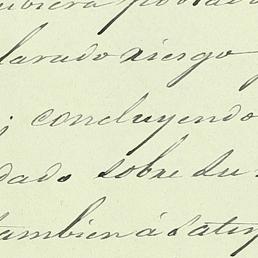 larado riesgo
; concluyendo
dado sobre su
tambien á satis